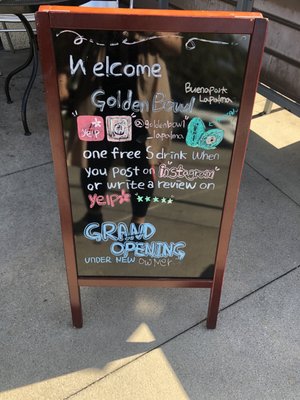 Welcome
Golden Bowl
Buena Park
La palma
yelp
@goldenbowl
_lapalma
one free S drink when
you post on instagram
or write a review on
yelp
GRAND
OPENING
UNDER NEW OWNER